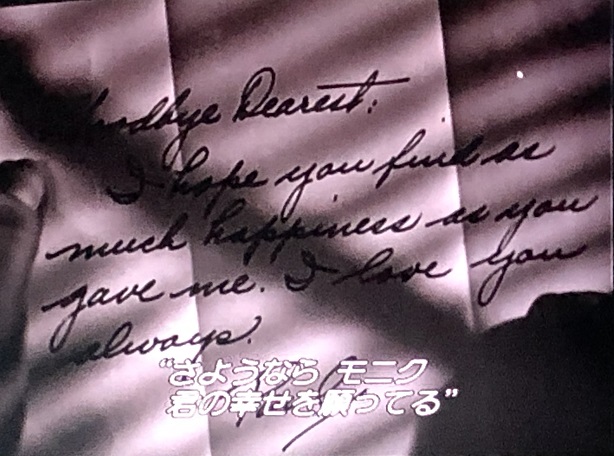 Goodbye Dearest:
I hope you find as
much happiness as you
gave me. I love you
always.
“さようなら モニク
君の幸せを願ってる”